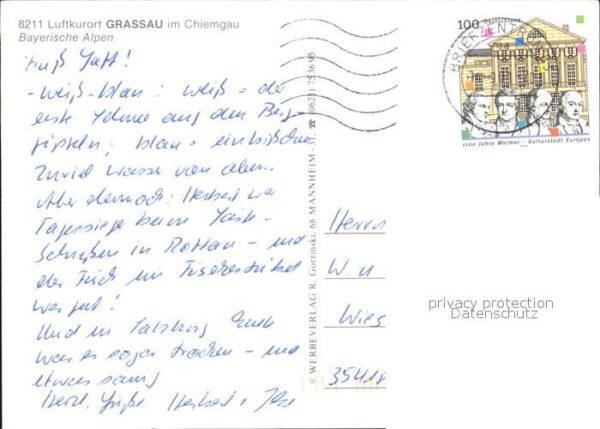 8211 Luftkurort GRASSAU im Chiemgau
Bayerische Alpen
- weiß-blau: weiß = der
erste Schnee auf den Berg-
gipfeln; blau = ein bißchen
zuviel Wasser von oben.
Aber dennoch: Herbert war
Tagessieger beim
schießen in Rottau - und
der Fisch im Fischerstüberl
war gut!
Und in Salzburg
war es sogar trocken - und
etwas sonnig
Herzl. Grüße Herbert +
© WERBEVERLAG R. Gorzinski, 68 MANNHEIM 31, ☎ (0621) 753696
100 Deutschland
BRIEFZENTRUM
1100 Jahre Weimar - Kulturstadt Europas
Herrn
W. u
Wies
35418
privacy protection
Datenschutz